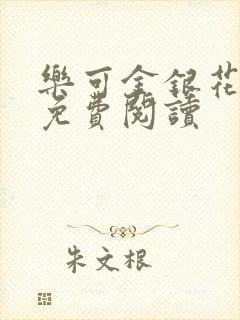 樂可金銀花
免費閱讀
朱文根